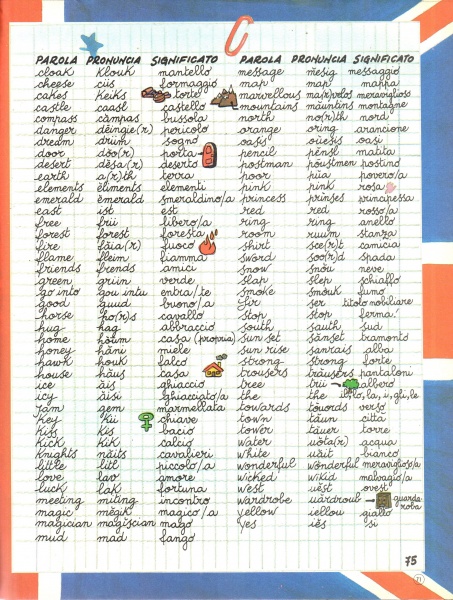 C
PAROLA PRONUNCIA SIGNIFICATO
cloak klouk mantello
cheese ciis formaggio
cakes keiks torte
castle caasl castello
compass càmpas bussola
danger déingie(r) pericolo
dream driim sogno
door dòo(r) porta
desert dèsa(r) deserto
earth a(r)th terra
elements èliments elementi
emerald emerald smeraldino/a
east ist est
free frii libero/a
forest forest foresta
fire fàia(r) fuoco
flame fleim fiamma
friends frends amici
green griin verde
go into gou intu entra/te
good guud buono/a
horse ho(r)s cavallo
hug hag abbraccio
home hōum casa (propria)
honey hàni miele
hawk houk falco
house hàus casa
ice àis ghiaccio
icy àisi ghiacciato/a
jam gem marmellata
key kii chiave
kiss kis bacio
kick kik calcio
knights nàits cavalieri
little litl piccolo/a
love lav amore
luck lak fortuna
meeting miting incontro
magic mègik magico/a
magician magiscian mago
mud mad fango
PAROLA PRONUNCIA SIGNIFICATO
message mesig messaggio
map map mappa
marvellous ma(r)vlos meraviglioso
mountains màuntins montagne
north no(r)th nord
orange oring arancione
oasis oùesis oasi
pencil pénsl matita
postman pòustmen postino
poor pùa povero/a
pink pink rosa
princess prinses principessa
red red rosso/a
ring ring anello
room ruum stanza
shirt sce(r)t camicia
sword soo(r)d spada
snow snòu neve
slap slep schiaffo
smoke smòuk fumo
sir ser titolo nobiliare
stop stop ferma!
south sauth sud
sun set sànset tramonto
sun rise sanrais alba
strong strong forte
trousers tràusers pantaloni
tree trii albero
the the il, lo, la, i, gli, le
towards tòuords verso
town tàun città
tower tàuer torre
water uòta(r) acqua
white uàit bianco
wonderful wònderful meraviglioso/a
wicked wikid malvagio/a
west uèst ovest
wardrobe uàrdroub guarda
roba
yellow iellou giallo
yes iès si
75